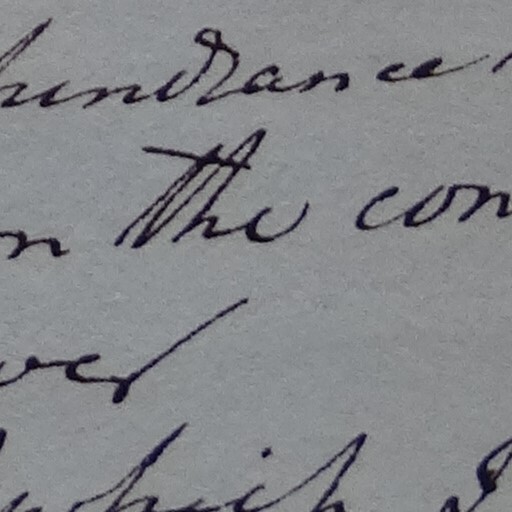 hundrance
n the con
ver
which I